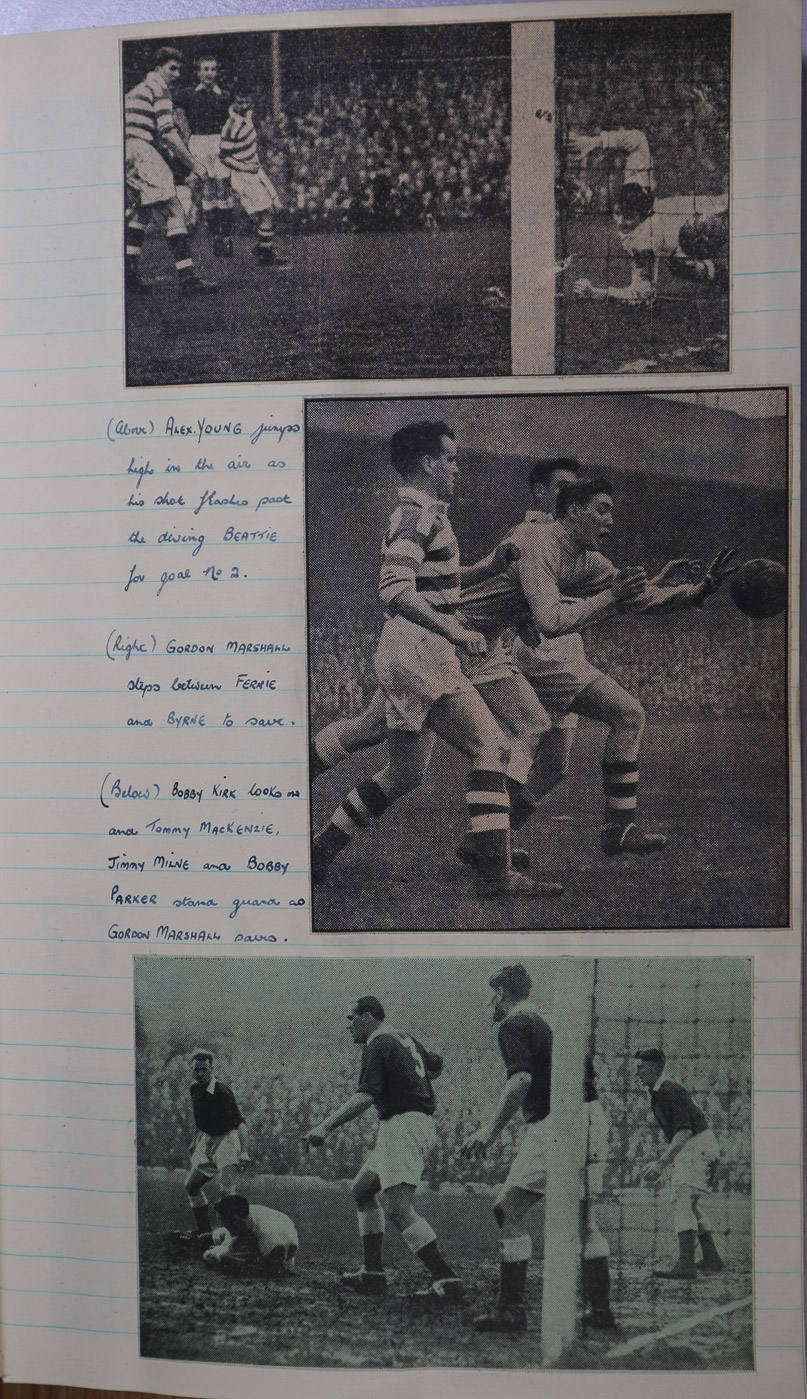 (Above) ALEX. YOUNG jumps
high in the air as
his shot flashes past
the diving BEATTIE
for goal No 2.
(Right) GORDON MARSHALL
steps between FERNIE
and BYRNE to save.
(Below) BOBBY KIRK looks on
and TOMMY MACKENZIE,
JIMMY MILNE and BOBBY
PARKER stand guard as
GORDON MARSHALL saves.
3